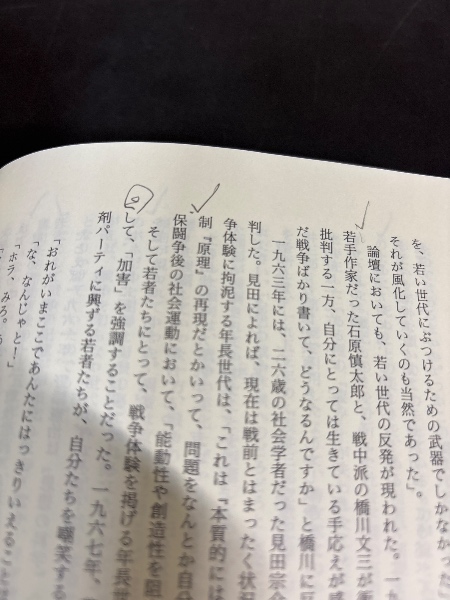 を、若い世代にぶつけるための武器でしかなかった
それが風化していくのも当然であった」。
論壇においても、若い世代の反発が現われた。一九
若手作家だった石原慎太郎と、戦中派の橋川文三が
批判する一方、自分にとっては生きている手応えが感
だ戦争ばかり書いて、どうなるんですか」と橋川に反
一九六三年には、二六歳の社会学者だった見田宗介
判した。見田によれば、現在は戦前とはまったく状況
争体験に拘泥する年長世代は、「これは『本質的には
制『原理』の再現だとかいって、問題をなんとか自分
保闘争後の社会運動において、「能動性や創造性を阻
そして若者たちにとって、戦争体験を掲げる年長世
して、「加害」を強調することだった。一九六七年、
剤パーティに興ずる若者たちが、自分たちを嘲笑する
「おれがいまここであんたにはっきりいえることは
「な、なんじゃと！」
「ホラ、みろ。